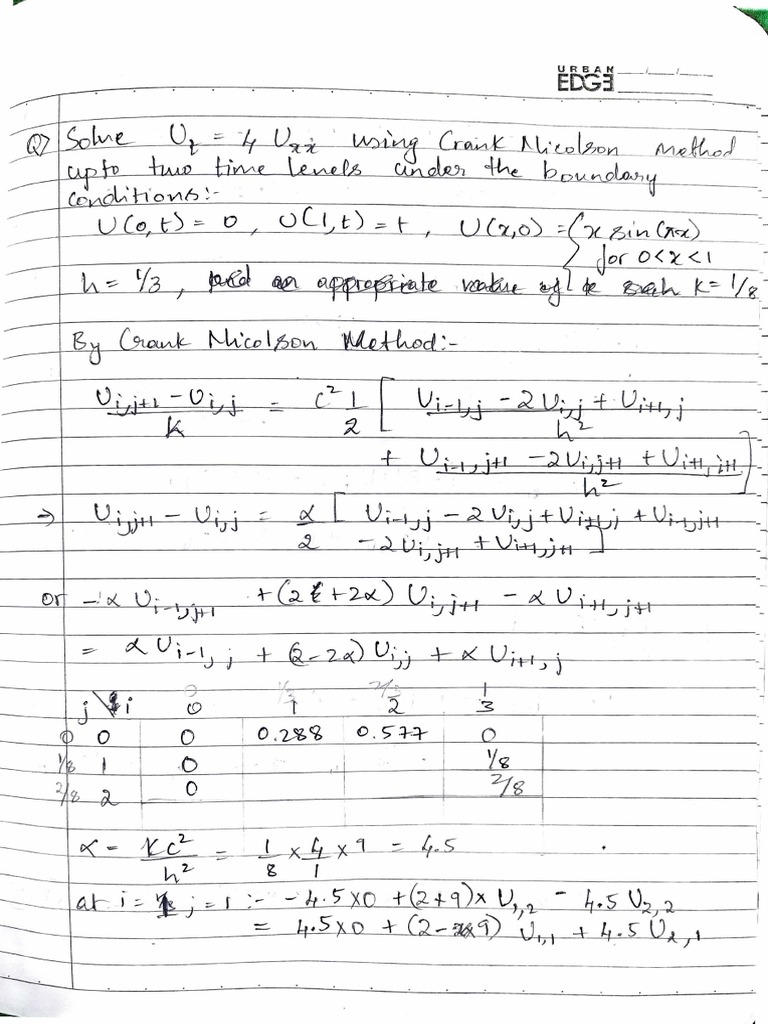 URBAN
EDGE
Q) Solve U_t = 4 U_xx using Crank Nicolson method
upto two time levels under the boundary
conditions:-
U(0,t) = 0 , U(1,t) = t , U(x,0) = { x sin(πx)
for 0<x<1
h = 1/3 , k = 1/8
By Crank Nicolson Method:-
(U_i,j+1 - U_i,j)/k = c² 1/2 [ (U_i-1,j - 2U_i,j + U_i+1,j)/h²
+ (U_i-1,j+1 - 2U_i,j+1 + U_i+1,j+1)/h² ]
→ U_i,j+1 - U_i,j = α/2 [ U_i-1,j - 2U_i,j + U_i+1,j + U_i-1,j+1
- 2U_i,j+1 + U_i+1,j+1 ]
or -α U_i-1,j+1 + (2+2α) U_i,j+1 - α U_i+1,j+1
= α U_i-1,j + (2-2α) U_i,j + α U_i+1,j
0 1/3 2/3 1
j \ i 0 1 2 3
0 0 0 0.288 0.577 0
1/8 1 0 1/8
2/8 2 0 2/8
α = kc²/h² = 1/8 × 4/1 × 9 = 4.5
at i = 1, j = 1 :- -4.5×0 + (2+9)× U_1,2 - 4.5 U_2,2
= 4.5×0 + (2-9) U_1,1 + 4.5 U_2,1